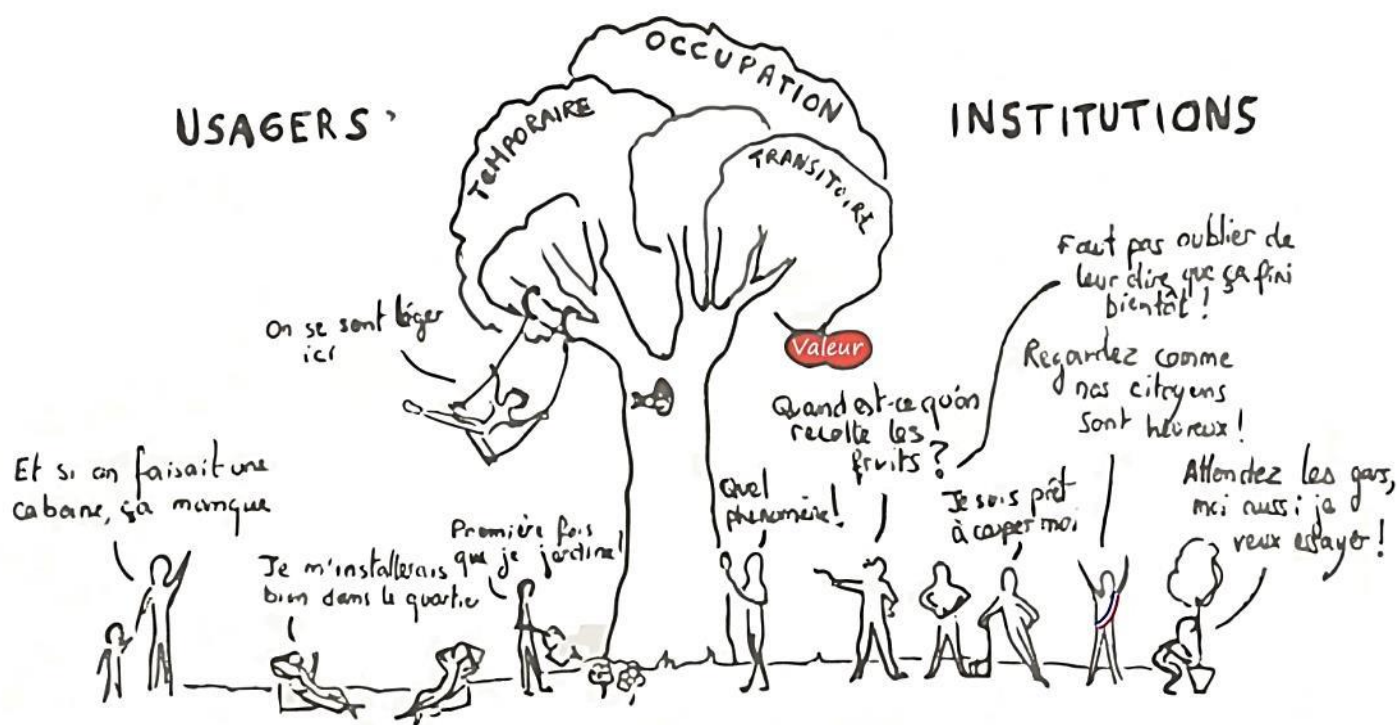 OCCUPATION
TEMPORAIRE
TRANSITOIRE
USAGERS
INSTITUTIONS
Valeur
On se sent léger
ici
Et si on faisait une
cabane, ça manque
Je m'installerais
bien dans le quartier
Première fois
que je jardine!
Quel
phénomène!
Quand est-ce qu'on
recolte les
fruits?
Je suis prêt
à couper moi
Faut pas oublier de
leur dire que ça fini
bientôt!
Regardez comme
nos citoyens
sont heureux!
Attendez les gars,
moi aussi je
veux essayer!